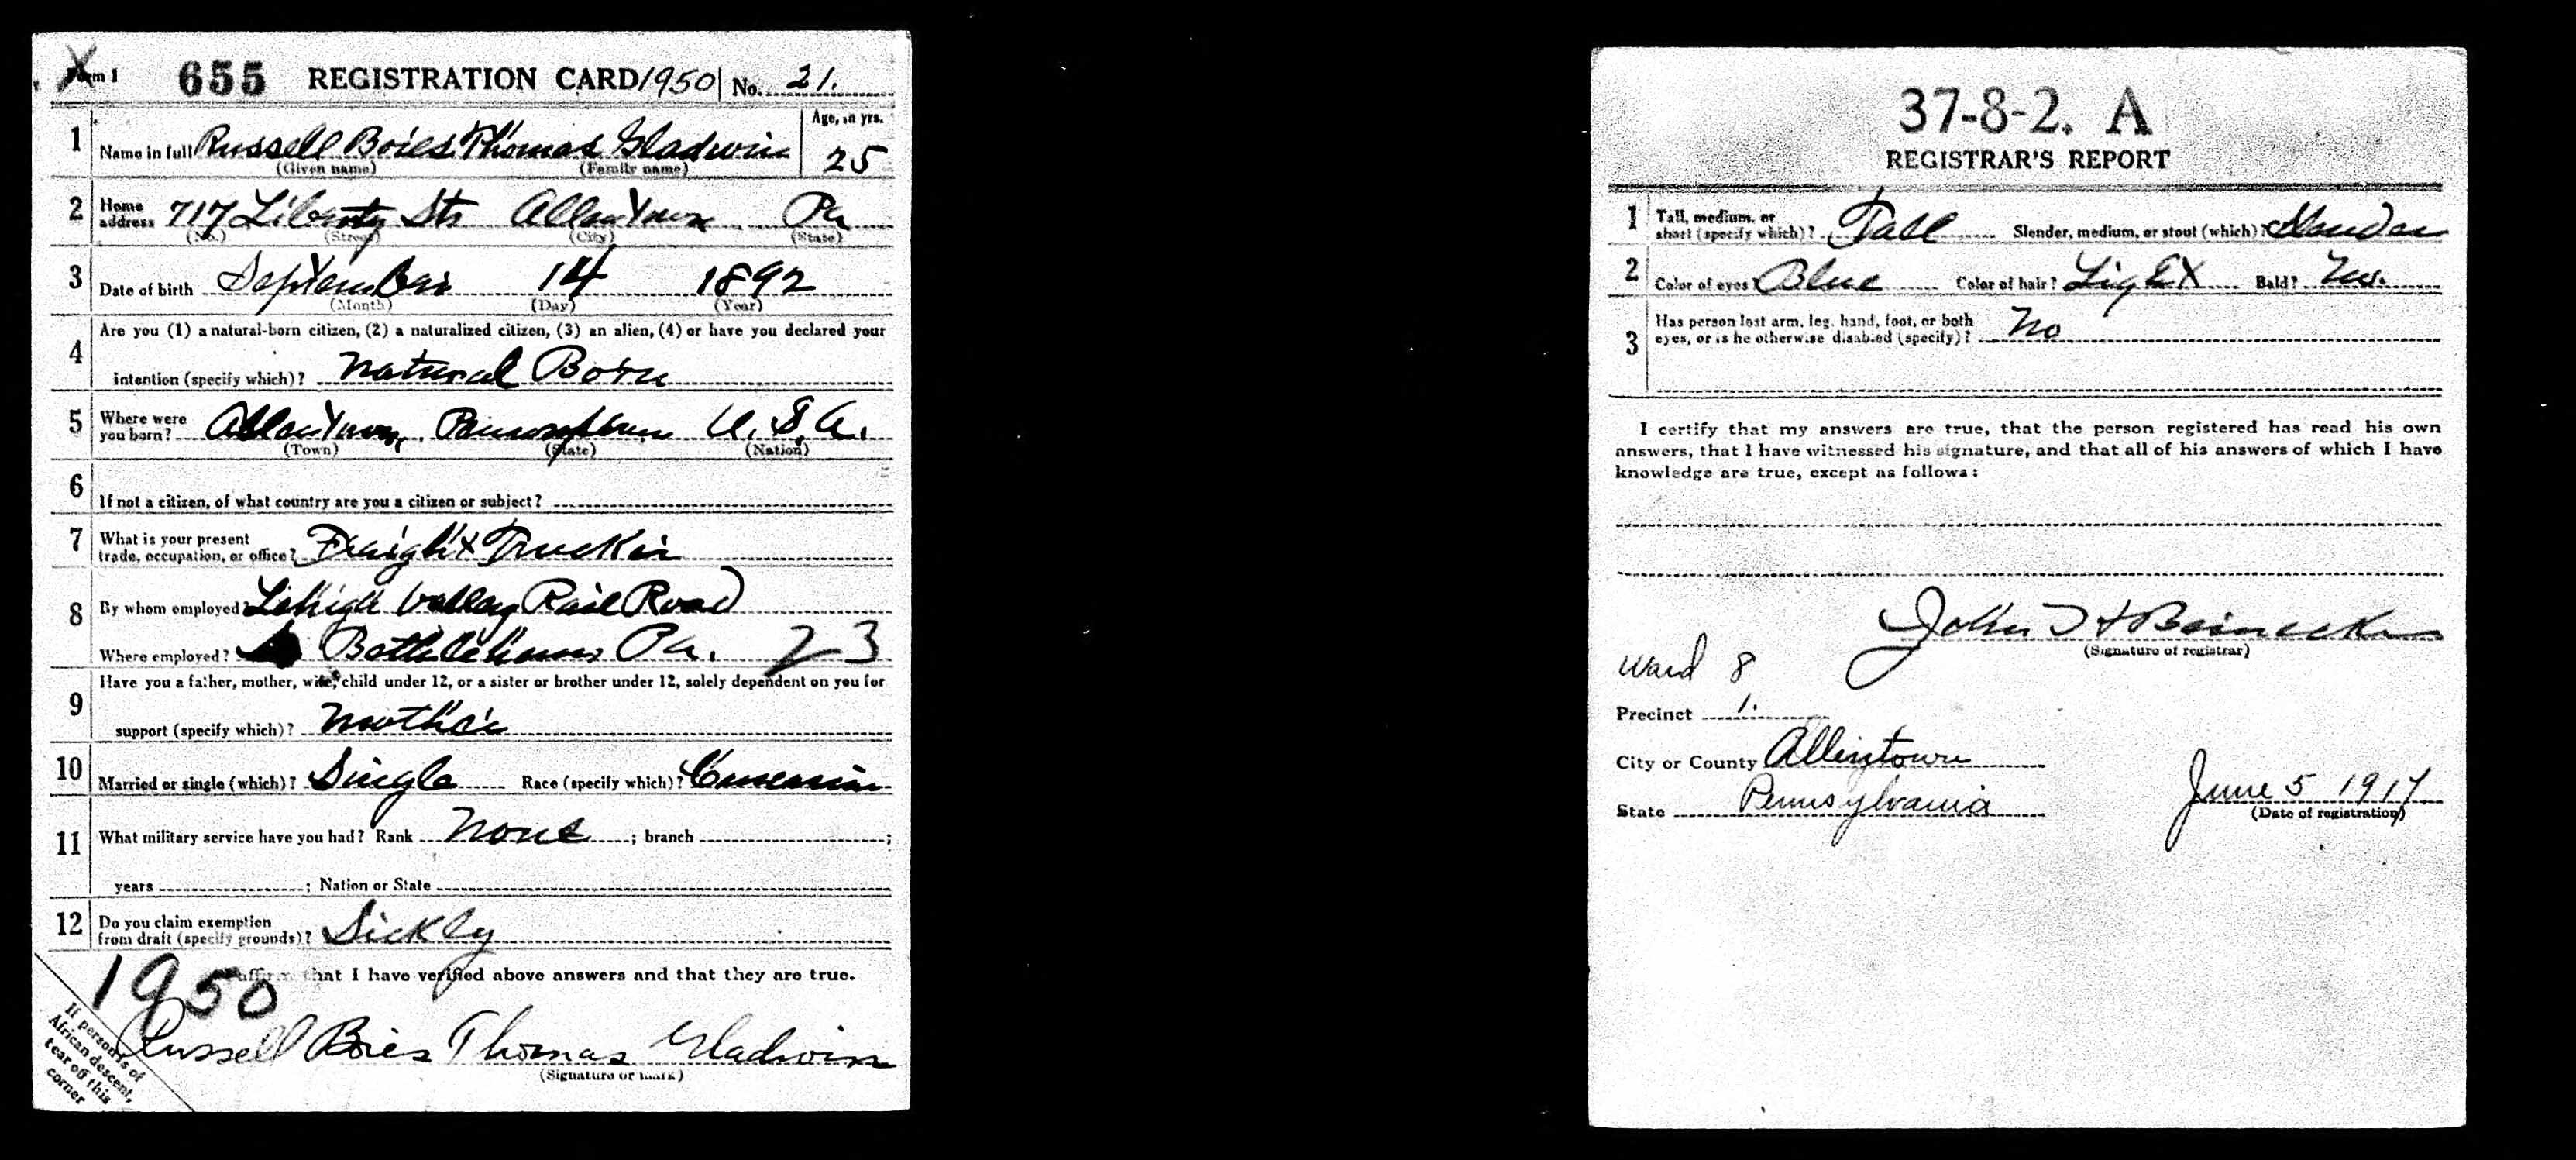 Form 1 655 REGISTRATION CARD 1950 No. 21.
1 Name in full Russell Boies Thomas Gladwin Age, in yrs. 25
(Given name) (Family name)
2 Home address 717 Liberty Str Allentown Pa
(No.) (Street) (City) (State)
3 Date of birth September 14 1892
(Month) (Day) (Year)
4 Are you (1) a natural-born citizen, (2) a naturalized citizen, (3) an alien, (4) or have you declared your
intention (specify which)? Natural Born
5 Where were you born? Allentown, U.S.A.
(Town) (State) (Nation)
6 If not a citizen, of what country are you a citizen or subject?
7 What is your present trade, occupation, or office? Freight Trucker
8 By whom employed? Lehigh Valley Rail Road
Where employed? Bethlehem Pa. 23
9 Have you a father, mother, wife, child under 12, or a sister or brother under 12, solely dependent on you for
support (specify which)? Mother
10 Married or single (which)? Single Race (specify which)? Caucasian
11 What military service have you had? Rank None ; branch ;
years ; Nation or State
12 Do you claim exemption from draft (specify grounds)? Sickly
1950 affirm that I have verified above answers and that they are true.
Russell Boies Thomas Gladwin
(Signature or mark)
If person is of African descent, tear off this corner
37-8-2. A
REGISTRAR'S REPORT
1 Tall, medium, or short (specify which)? Tall Slender, medium, or stout (which)? Slender
2 Color of eyes Blue Color of hair? Light Bald? No.
3 Has person lost arm, leg, hand, foot, or both eyes, or is he otherwise disabled (specify)? No
I certify that my answers are true, that the person registered has read his own
answers, that I have witnessed his signature, and that all of his answers of which I have
knowledge are true, except as follows:
John
(Signature of registrar)
Ward 8
Precinct 1.
City or County Allentown
State Pennsylvania June 5 1917
(Date of registration)